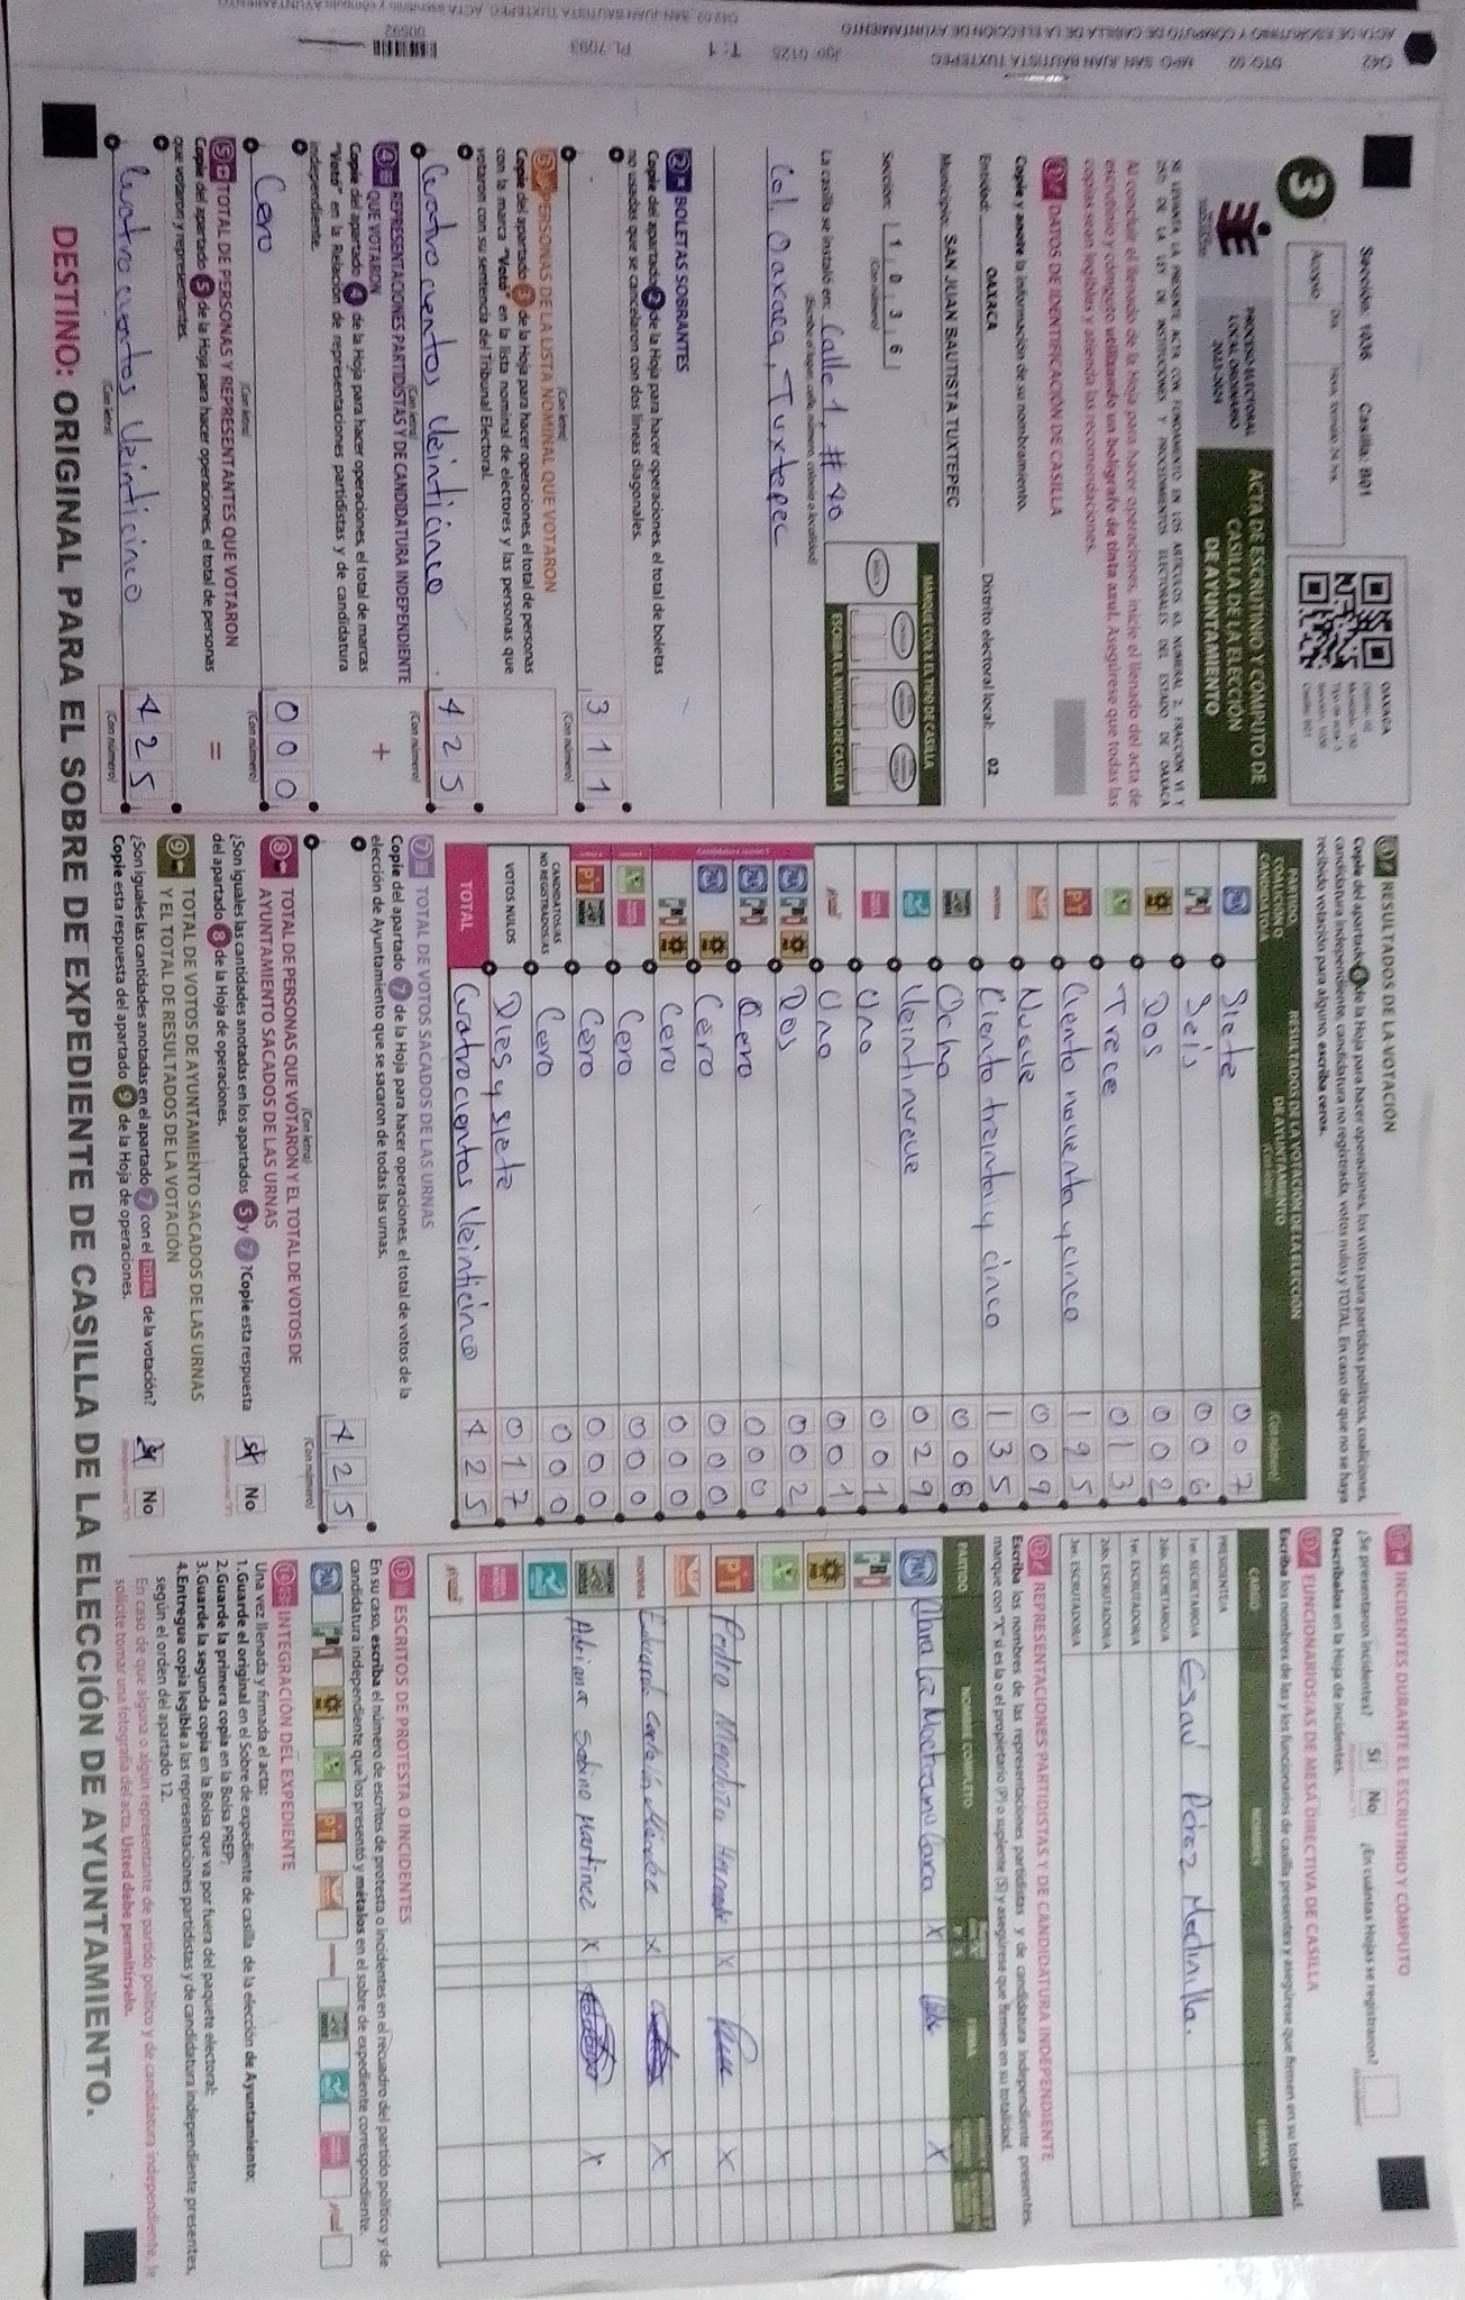 Sección: 1036 Casilla: B01
OAXACA
Acopio
3
PROCESO ELECTORAL
LOCAL ORDINARIO
2023-2024
ACTA DE ESCRUTINIO Y CÓMPUTO DE
CASILLA DE LA ELECCIÓN
DE AYUNTAMIENTO
SE LEVANTA LA PRESENTE ACTA CON FUNDAMENTO EN LOS ARTÍCULOS 63, NUMERAL 2, FRACCIÓN VI Y
DE LA LEY DE INSTITUCIONES Y PROCEDIMIENTOS ELECTORALES DEL ESTADO DE OAXACA
Al concluir el llenado de la Hoja para hacer operaciones, inicie el llenado del acta de
escrutinio y cómputo utilizando un bolígrafo de tinta azul. Asegúrese que todas las
copias sean legibles y atienda las recomendaciones.
1 DATOS DE IDENTIFICACIÓN DE CASILLA
Copie y anote la información de su nombramiento.
Entidad: OAXACA Distrito electoral local: 02
Municipio: SAN JUAN BAUTISTA TUXTEPEC
Sección: 1 0 3 6
(Con número)
MARQUE CON X EL TIPO DE CASILLA
ESCRIBA EL NÚMERO DE CASILLA
La casilla se instaló en: Calle 1, # 40
(Escriba el lugar, calle, número, colonia o localidad)
Col. Oaxaca, Tuxtepec
2 BOLETAS SOBRANTES
Copie del apartado 2 de la Hoja para hacer operaciones, el total de boletas
no usadas que se cancelaron con dos líneas diagonales.
3 1 1
(Con letra) (Con número)
3 PERSONAS DE LA LISTA NOMINAL QUE VOTARON
Copie del apartado 3 de la Hoja para hacer operaciones, el total de personas
con la marca "Votó" en la lista nominal de electores y las personas que
votaron con su sentencia del Tribunal Electoral.
Cuatrocientos Veinticinco 4 2 5
(Con letra) (Con número)
4 REPRESENTACIONES PARTIDISTAS Y DE CANDIDATURA INDEPENDIENTE
QUE VOTARON +
Copie del apartado 4 de la Hoja para hacer operaciones, el total de marcas
"Votó" en la Relación de representaciones partidistas y de candidatura
independiente.
Cero 0 0 0
(Con letra) (Con número)
5 TOTAL DE PERSONAS Y REPRESENTANTES QUE VOTARON =
Copie del apartado 5 de la Hoja para hacer operaciones, el total de personas
que votaron y representantes.
Cuatrocientos Veinticinco 4 2 5
(Con letra) (Con número)
RESULTADOS DE LA VOTACIÓN
Copie del apartado 6 de la Hoja para hacer operaciones, los votos para partidos políticos, coaliciones,
candidatura independiente, candidatura no registrada, votos nulos y TOTAL. En caso de que no se haya
recibido votación para alguno, escriba ceros.
PARTIDO, COALICIÓN O CANDIDATURA
RESULTADOS DE LA VOTACIÓN DE LA ELECCIÓN
DE AYUNTAMIENTO
PAN Siete 0 0 7
PRI Seis 0 0 6
Dos 0 0 2
Trece 0 1 3
PT Ciento noventa y cinco 1 9 5
Nueve 0 0 9
morena Ciento treinta y cinco 1 3 5
Ocho 0 0 8
Veintinueve 0 2 9
Uno 0 0 1
Uno 0 0 1
PAN PRI Dos 0 0 2
PAN PRI Cero 0 0 0
PAN Cero 0 0 0
PRI Cero 0 0 0
Cero 0 0 0
PT Cero 0 0 0
CANDIDATOS/AS
NO REGISTRADOS/AS Cero 0 0 0
VOTOS NULOS Dies y siete 0 1 7
TOTAL Cuatrocientos Veinticinco 4 2 5
7 TOTAL DE VOTOS SACADOS DE LAS URNAS
Copie del apartado 7 de la Hoja para hacer operaciones, el total de votos de la
elección de Ayuntamiento que se sacaron de todas las urnas.
4 2 5
(Con letra) (Con número)
8 TOTAL DE PERSONAS QUE VOTARON Y EL TOTAL DE VOTOS DE
AYUNTAMIENTO SACADOS DE LAS URNAS
¿Son iguales las cantidades anotadas en los apartados 5 y 7? Copie esta respuesta
del apartado 8 de la Hoja de operaciones.
Sí No
9 TOTAL DE VOTOS DE AYUNTAMIENTO SACADOS DE LAS URNAS
Y EL TOTAL DE RESULTADOS DE LA VOTACIÓN
¿Son iguales las cantidades anotadas en el apartado 7 con el TOTAL de la votación?
Copie esta respuesta del apartado 9 de la Hoja de operaciones.
Sí No
INCIDENTES DURANTE EL ESCRUTINIO Y CÓMPUTO
¿Se presentaron incidentes? Sí No ¿En cuántas Hojas se registraron?
Descríbalos en la Hoja de incidentes.
FUNCIONARIOS/AS DE MESA DIRECTIVA DE CASILLA
Escriba los nombres de las y los funcionarios de casilla presentes y asegúrese que firmen en su totalidad.
CARGO NOMBRES FIRMAS
PRESIDENTE/A
1er. SECRETARIO/A Esaú Pérez Medinilla.
2do. SECRETARIO/A
1er. ESCRUTADOR/A
2do. ESCRUTADOR/A
3er. ESCRUTADOR/A
REPRESENTACIONES PARTIDISTAS Y DE CANDIDATURA INDEPENDIENTE
Escriba los nombres de las representaciones partidistas y de candidatura independiente presentes,
marque con "X" si es la o el propietario (P) o suplente (S) y asegúrese que firmen en su totalidad.
PARTIDO NOMBRE COMPLETO FIRMA
PAN X X
PRI
PT Pedro X X
morena Eduardo X X
Adriana Sabino Martinez X X
ESCRITOS DE PROTESTA O INCIDENTES
En su caso, escriba el número de escritos de protesta o incidentes en el recuadro del partido político y de
candidatura independiente que los presentó y métalos en el sobre de expediente correspondiente.
INTEGRACIÓN DEL EXPEDIENTE
Una vez llenada y firmada el acta:
1.Guarde el original en el Sobre de expediente de casilla de la elección de Ayuntamiento;
2.Guarde la primera copia en la Bolsa PREP;
3.Guarde la segunda copia en la Bolsa que va por fuera del paquete electoral;
4.Entregue copia legible a las representaciones partidistas y de candidatura independiente presentes,
según el orden del apartado 12.
En caso de que alguna o algún representante de partido político y de candidatura independiente, le
solicite tomar una fotografía del acta. Usted debe permitírselo.
DESTINO: ORIGINAL PARA EL SOBRE DE EXPEDIENTE DE CASILLA DE LA ELECCIÓN DE AYUNTAMIENTO.
042 DTO: 02 MPO: SAN JUAN BAUTISTA TUXTEPEC Jgo: 0125 T: 1 PL: 7093 00592
ACTA DE ESCRUTINIO Y CÓMPUTO DE CASILLA DE LA ELECCIÓN DE AYUNTAMIENTO